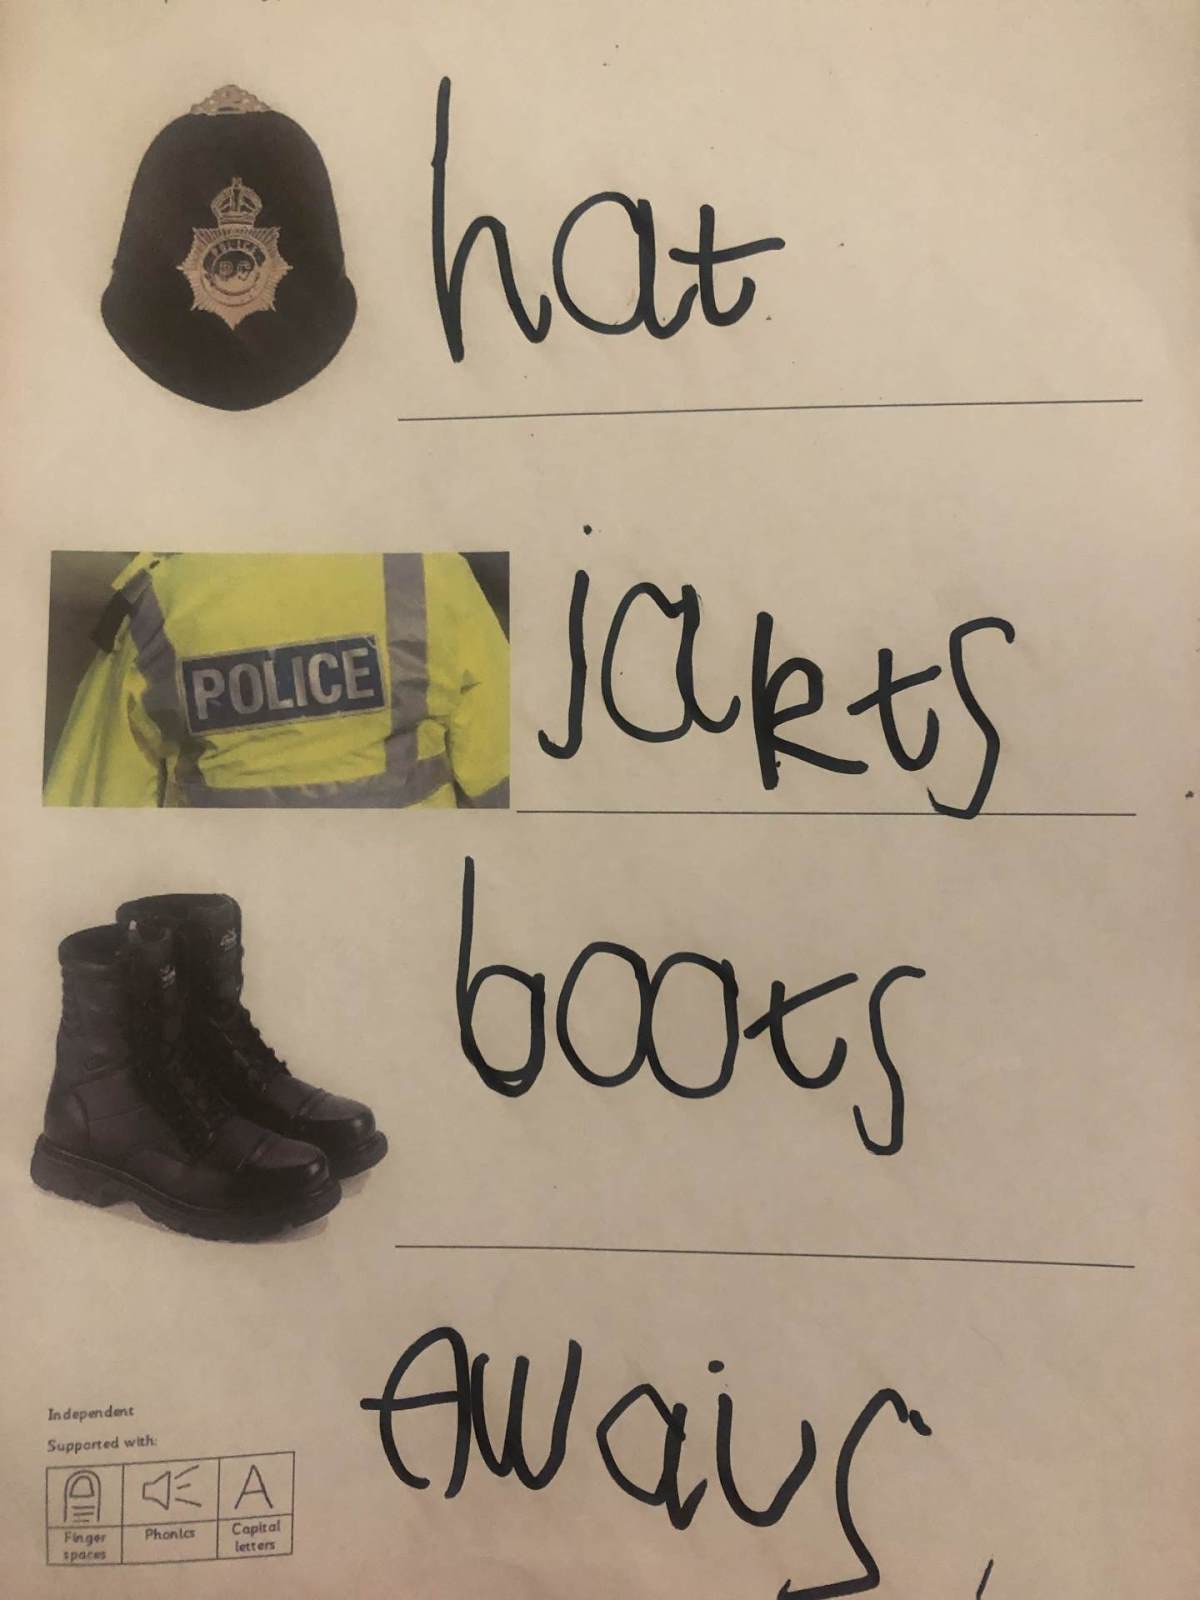 hat
POLICE
jakts
boots
Awais
Independent
Supported with:
Finger spaces
Phonics
A
Capital letters